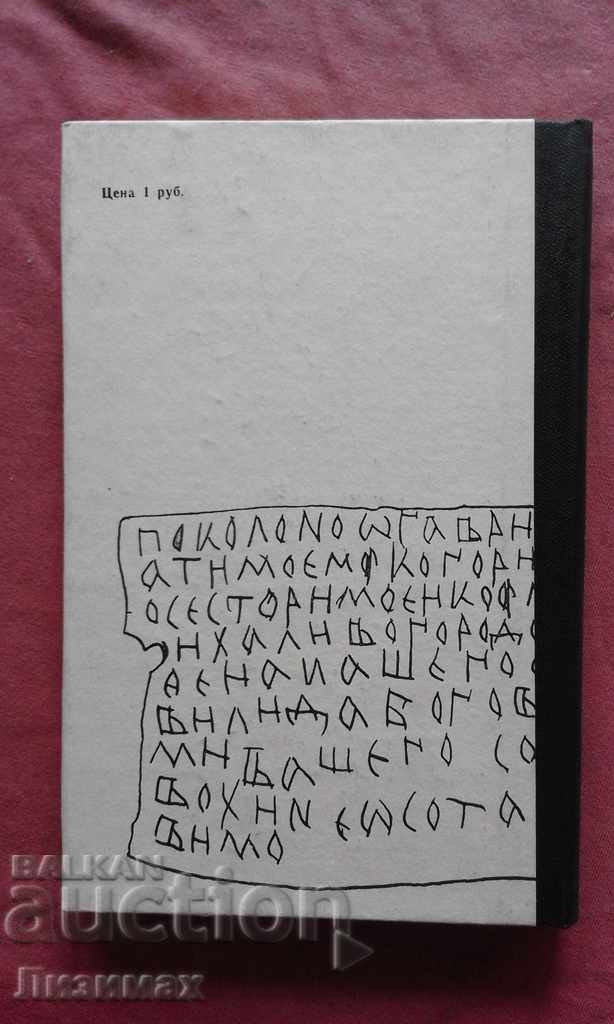 Цена 1 руб.
ПОКОЛОNОѠГАВРН
АТНМОЕМꙊКОГОРН
ОСЕСТОРНМОЕНКОꙊ
НХАЛНВОГОРОДО
ЕНАНАШЕГО
ВНЛНДАБОГОВ
МНВАШЕГО СО
ВОХНNЕѠСОТА
ВНМО
BALKAN
auction
Лизимах